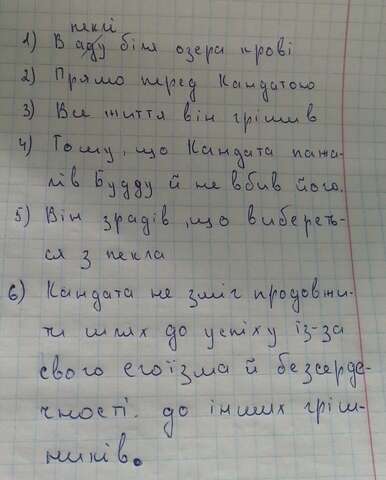 пеклі
1) В аду біля озера крові
2) Прямо перед Кандатою
3) Все життя він грішив
4) Тому, що Кандата пожа-
лів Будду й не вбив його.
5) Він зрадів, що выбереть-
ся з пекла
6) Кандата не зміг продовжи-
ти шлях до успіху із-за
свого егоїзма й безсерде-
чності. до інших гріш-
ників.